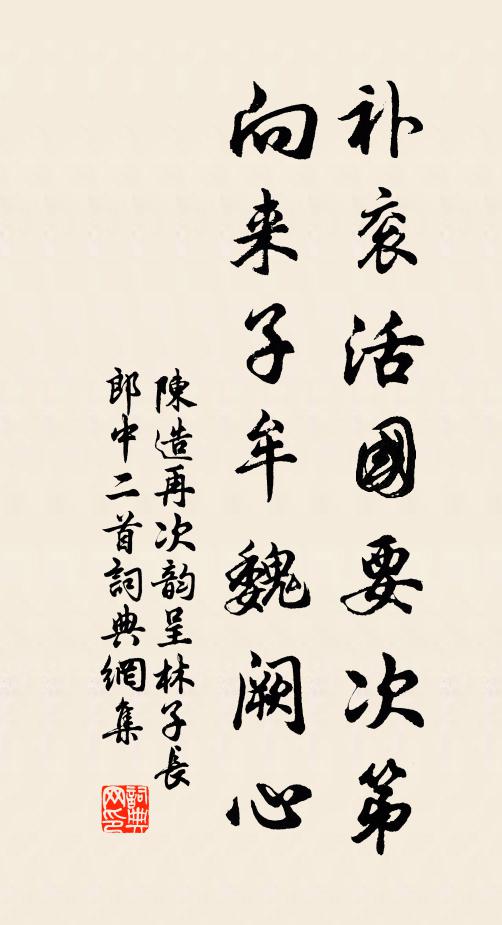 补衮活國要次第
向来子牟魏阙心
陳造再次韵呈林子長
郎中二首詞典網集
詞典网印